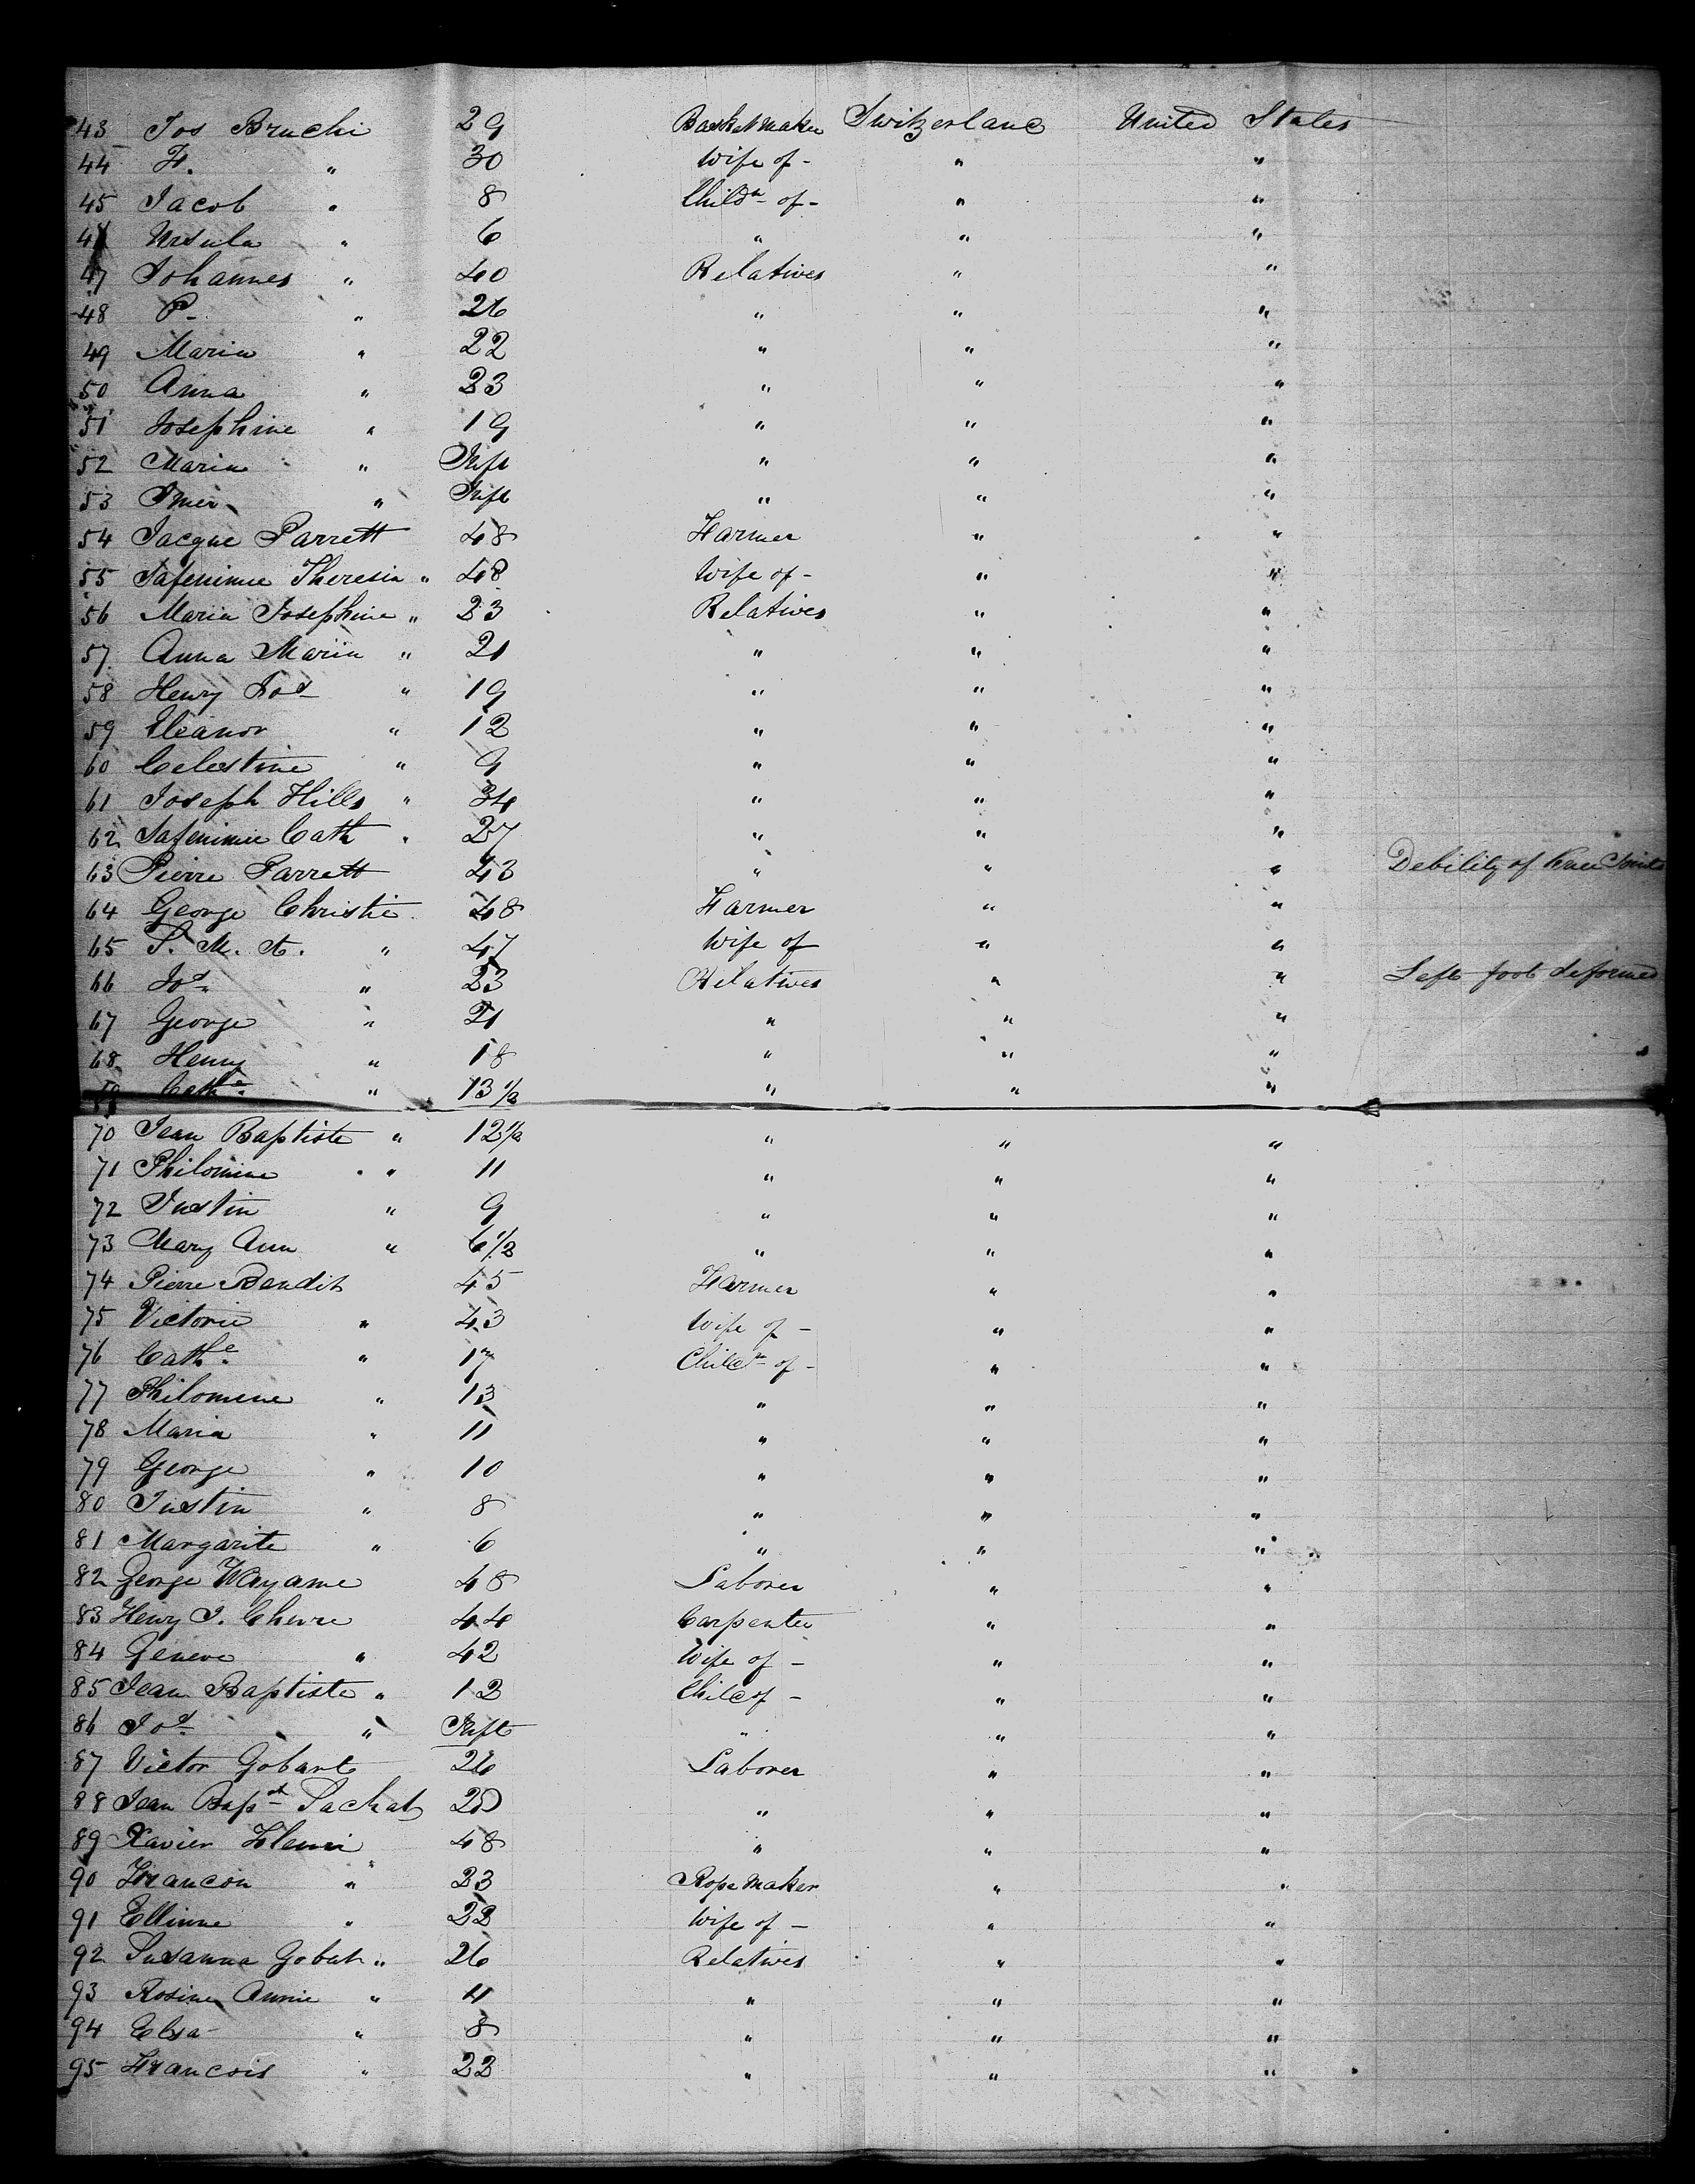 43 Jos Bruchi 29 Basketmaker Switzerland United States
44 F. " 30 Wife of - " "
45 Jacob " 8 Childn of - " "
46 Ursula " 6 " " "
47 Johannes " 40 Relatives " "
48 P- " 26 " " "
49 Maria " 22 " " "
50 Anna " 23 " " "
51 Josephine " 19 " " "
52 Maria " Inft " " "
53 Imer " Inft " " "
54 Jacque Parrett 48 Farmer " "
55 Theresia " 48 Wife of - " "
56 Maria Josephine " 23 Relatives " "
57 Anna Maria " 21 " " "
58 Henry Jos " 19 " " "
59 Eleanor " 12 " " "
60 Celestine " 9 " " "
61 Joseph Hills " 34 " " "
62 Cath " 27 " " "
63 Pierre Parrett 43 " " " Debility of Knee Joints
64 George Christie 48 Farmer " "
65 S. M. A. " 47 Wife of " "
66 Jos " 23 Relatives " " Left foot deformed
67 George " 21 " " "
68 Henry " 18 " " "
69 Cathe " 13 1/2 " " "
70 Jean Baptiste " 12 1/2 " " "
71 Philomine " 11 " " "
72 Justin " 9 " " "
73 Mary Ann " 6 1/2 " " "
74 Pierre Bendit 45 Farmer " "
75 Victorie " 43 Wife of - " "
76 Cathe " 17 Childn of - " "
77 Philomene " 13 " " "
78 Maria " 11 " " "
79 George " 10 " " "
80 Justin " 8 " " "
81 Margarite " 6 " " "
82 George Wayame 48 Laborer " "
83 Henry J. Chevre 44 Carpenter " "
84 Geneve " 42 Wife of - " "
85 Jean Baptiste " 12 Child of - " "
86 Jos " Inft " " "
87 Victor Gobart 26 Laborer " "
88 Jean Bapst Sachat 20 " " "
89 Xavier Henri 48 " " "
90 Francon " 23 Rope Maker " "
91 Ellinne " 22 Wife of - " "
92 Susanna Gobat " 26 Relatives " "
93 Rosine Annie " 4 " " "
94 Elsa " 8 " " "
95 Francois " 22 " " "